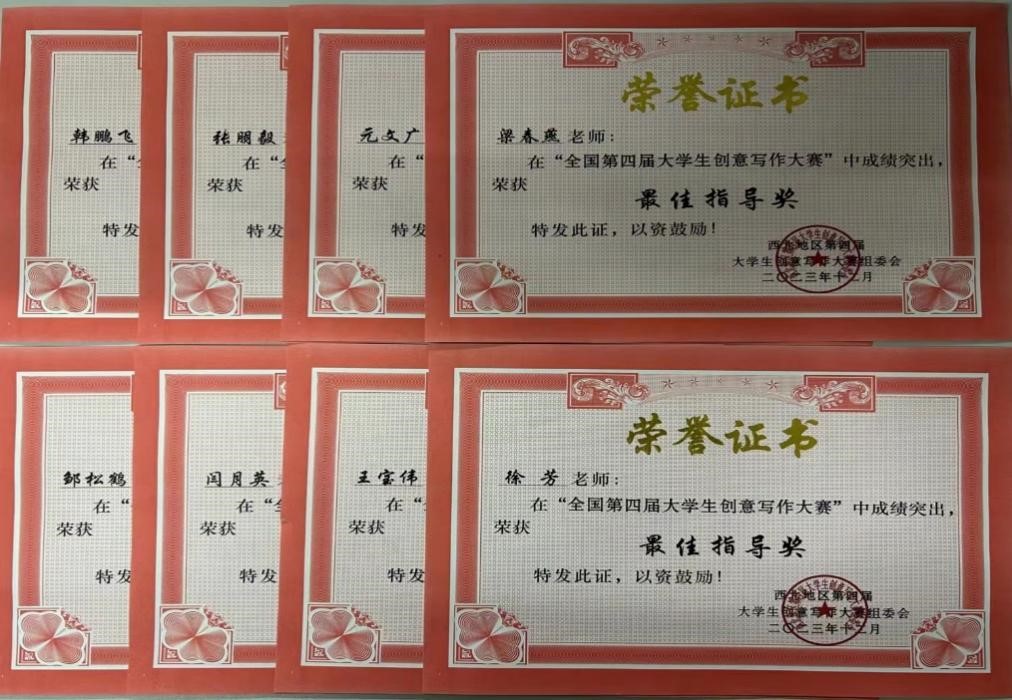 韩鹏飞
在“全
荣获
特发
张朋毅
在“全
荣获
特发
元文广
在“
荣获
特发
荣誉证书
梁春燕 老师：
在“全国第四届大学生创意写作大赛”中成绩突出，
荣获
最佳指导奖
特发此证，以资鼓励！
西北地区第四届
大学生创意写作大赛组委会
二〇二三年十二月
邹松鹤
在“
荣获
特发
闫月英
在“全
荣获
特发
王宝伟
在“
荣获
特发
荣誉证书
徐芳 老师：
在“全国第四届大学生创意写作大赛”中成绩突出，
荣获
最佳指导奖
特发此证，以资鼓励！
西北地区第四届
大学生创意写作大赛组委会
二〇二三年十二月